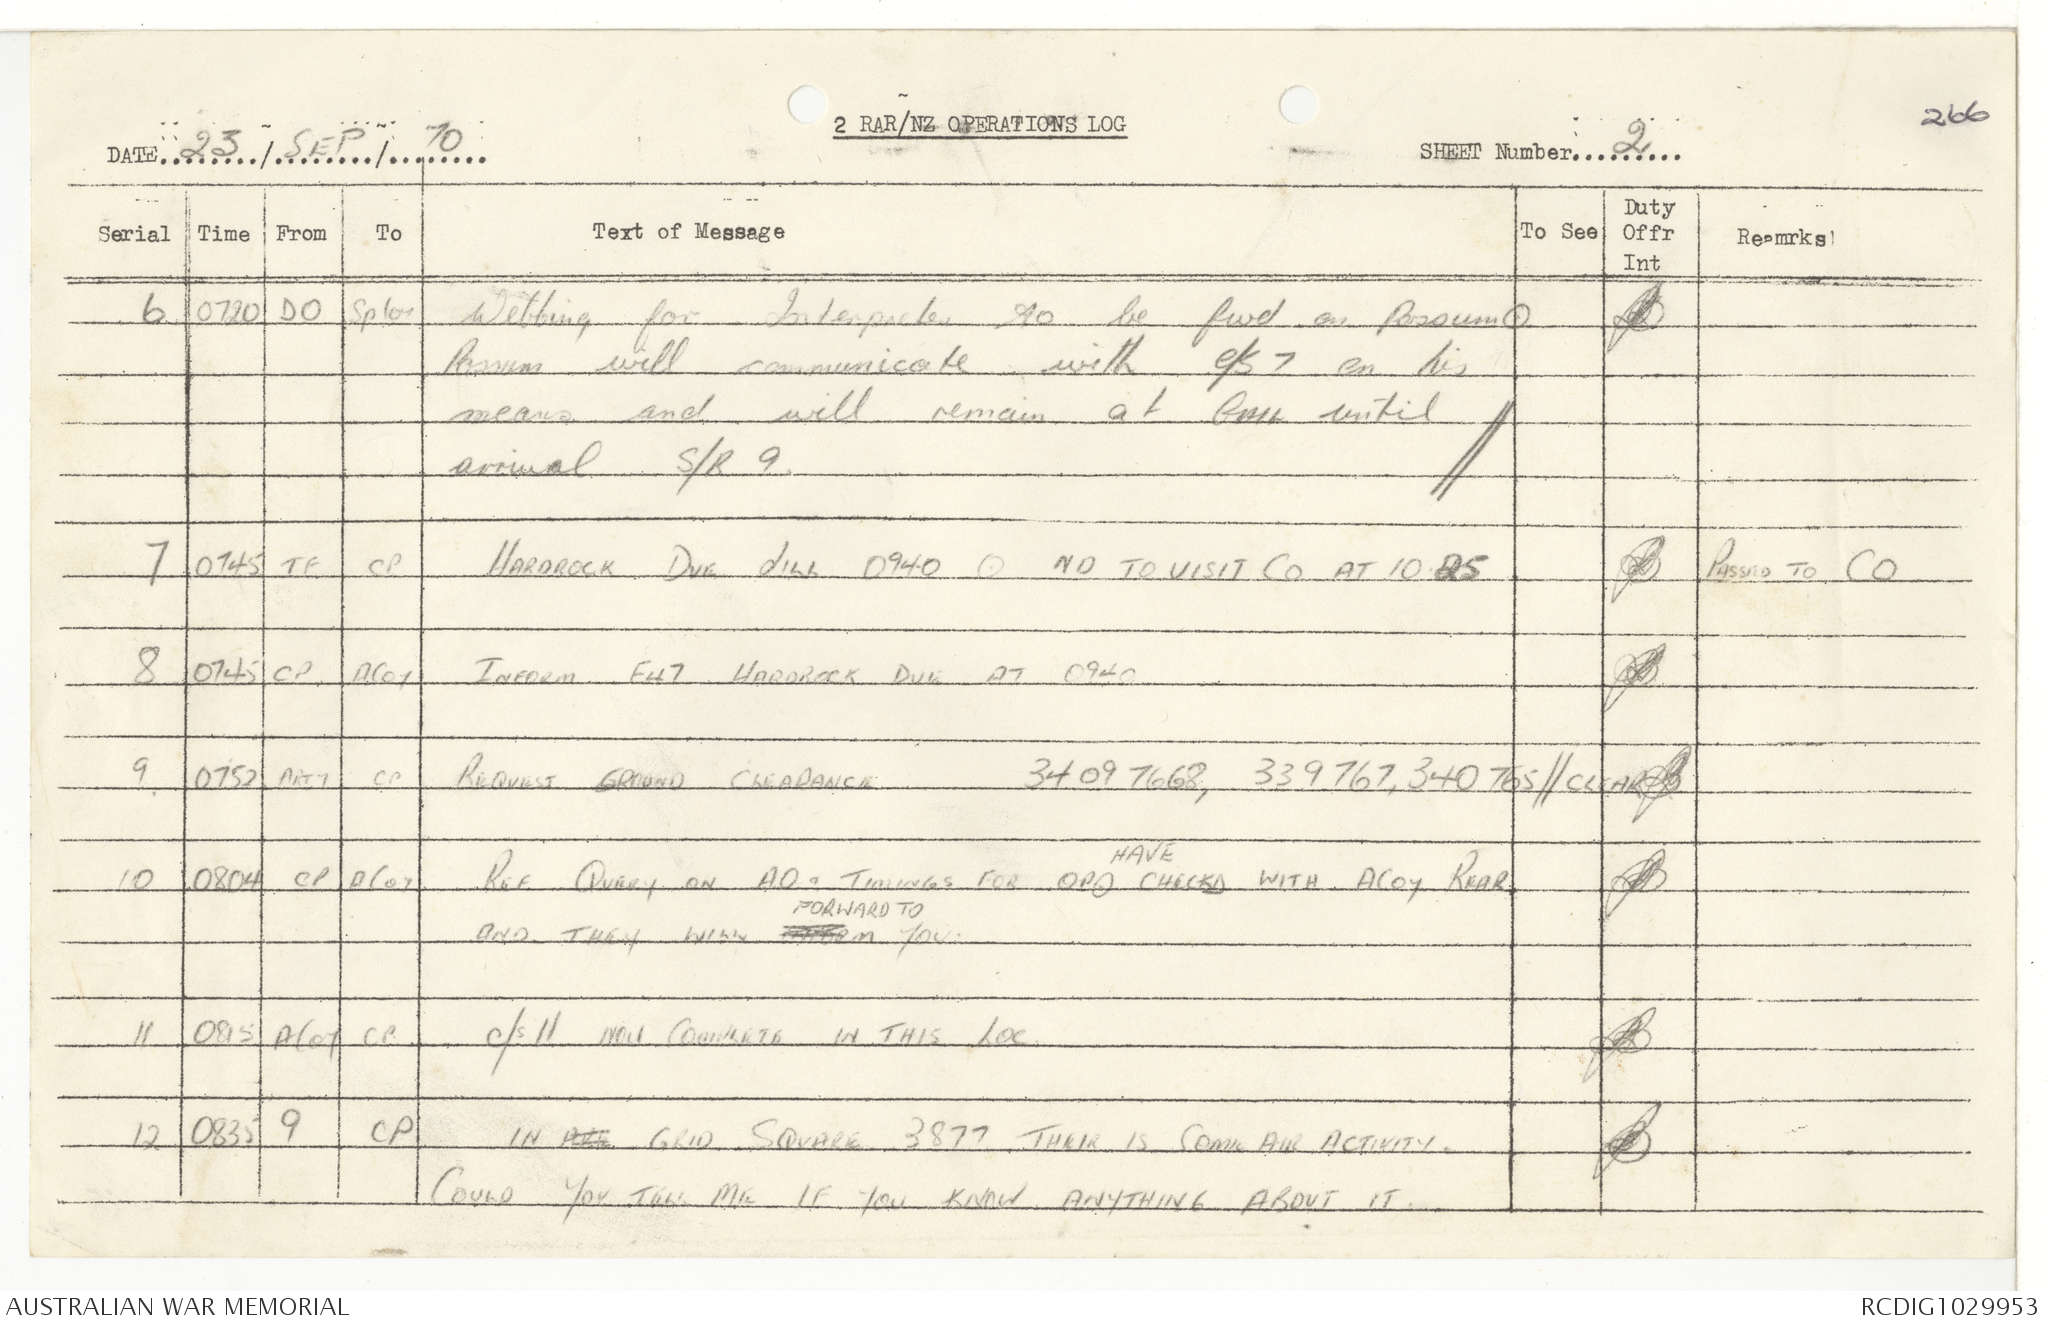 266
2 RAR/NZ OPERATIONS LOG
DATE 23 / SEP / 70
SHEET Number 2
Serial Time From To Text of Message To See Duty Offr Int Remrks
6 0720 DO Webbing for Interpreter to be fwd on Possum
Possum will communicate with c/s 7 on his
means and will remain at until
arrival S/R 9.
7 0745 TF CP HARDROCK DUE 0940 ND TO VISIT CO AT 10 PASSED TO CO
8 0745 CP A COY INFORM F47 HARDROCK DUE AT 0940
9 0752 ARTY CP REQUEST GROUND CLEARANCE 34097668, 339767, 340765 // CLEAR
HAVE
10 0804 CP A COY REF QUERY ON AO. TIMINGS FOR OPO CHECKD WITH A COY REAR
FORWARD TO
AND THEY WILL YOU.
11 0815 A COY CP c/s 11 NOW COMPLETE IN THIS LOC
12 0835 9 CP IN GRID SQUARE 3877 THEIR IS SOME AIR ACTIVITY.
COULD YOU TELL ME IF YOU KNOW ANYTHING ABOUT IT.
AUSTRALIAN WAR MEMORIAL
RCDIG1029953